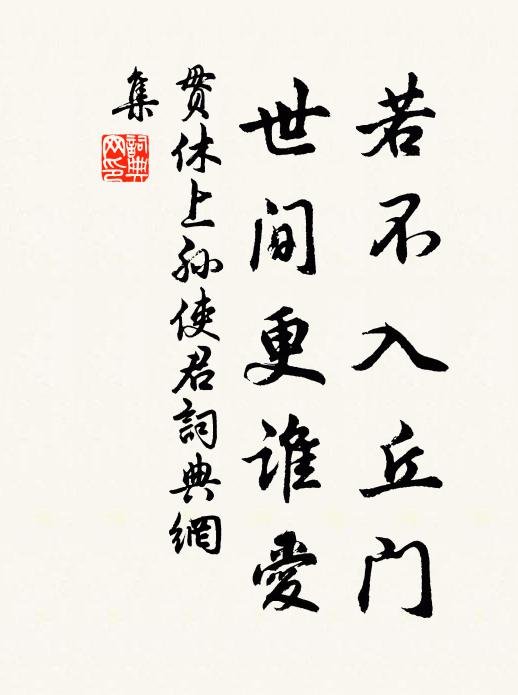 若不入丘门
世间更谁爱
贯休上孙使君詞典網
集
詞典网印